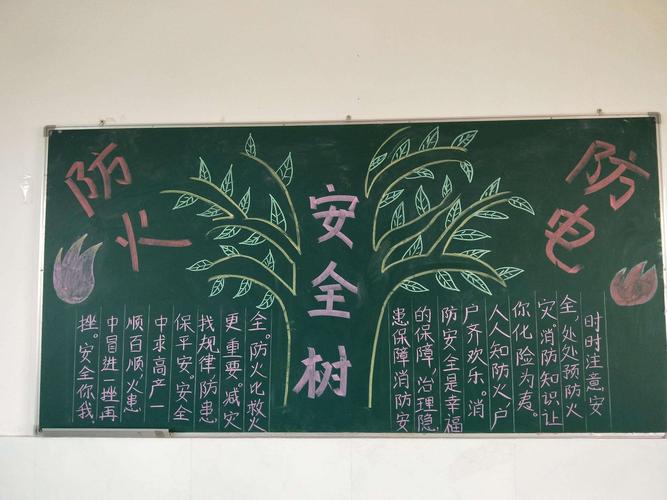 防火
安全树
防电
时时注意安
全,处处预防火
灾。消防知识让
你化险为夷。
人人知防火,户
户齐欢乐。消
防安全是幸福
的保障,治理隐
患保障消防安
全。防火比救火
更重要。减灾
找规律防患
保平安。安全
中求高产一
顺百顺,火患
中冒进一挫再
挫。安全你我,